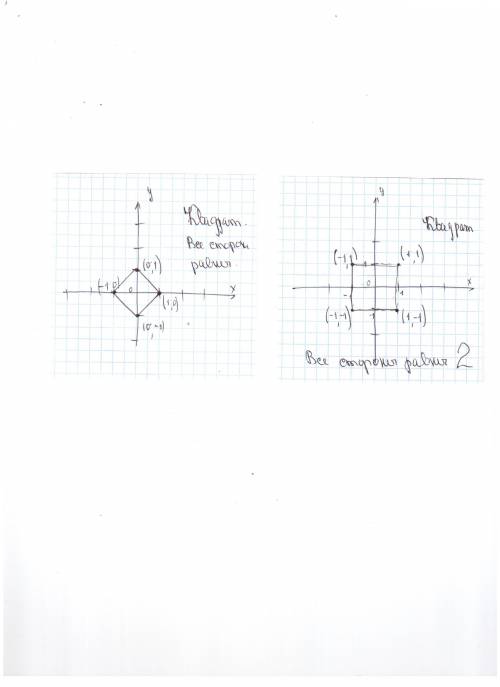 y
Квадрат.
Все сторон
равны.
(0,1)
(-1,0)
0
x
(1,0)
(0,-1)
y
Квадрат
(-1,1)
1
(1,1)
0
x
-1
1
(-1,-1)
-1
(1,-1)
Все стороны равны 2